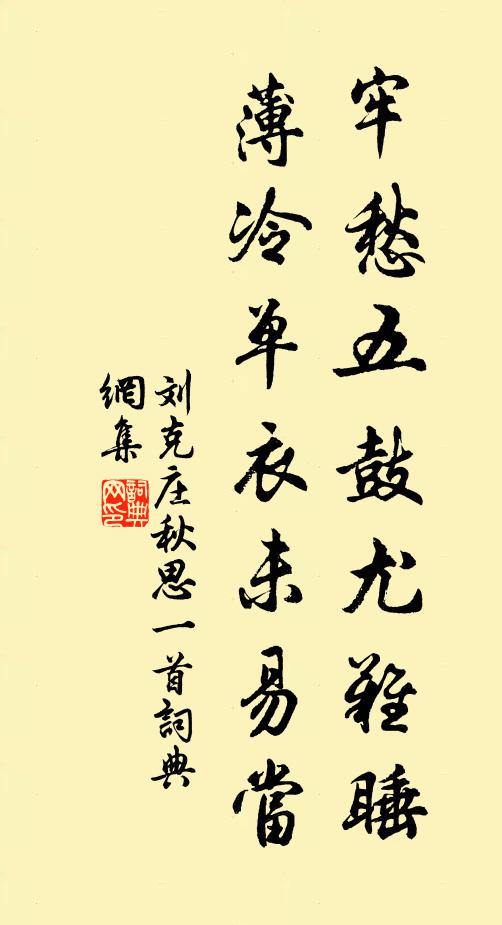 牢愁五鼓尤難睡
薄冷单衣未易當
刘克庄秋思一首詞典
網集
詞典
网印